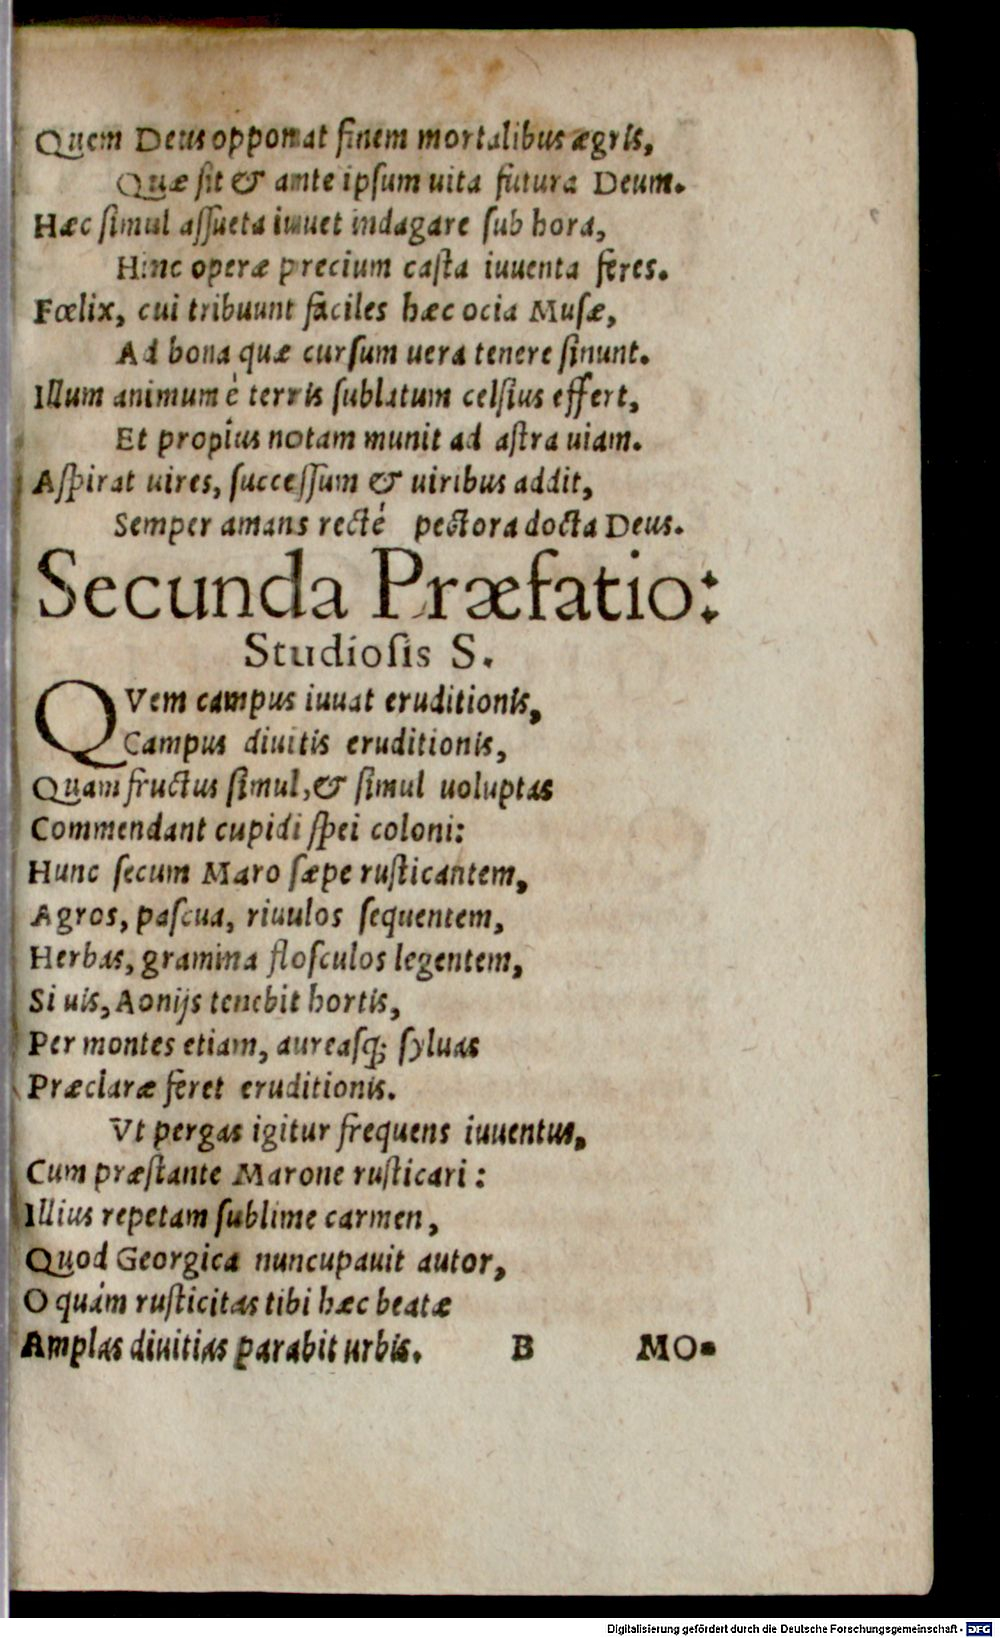 Quem Deus opponat finem mortalibus ægris,
Quæ sit & ante ipsum uita futura Deum.
Hæc simul assueta iuuet indagare sub hora,
Hinc operæ precium casta iuuenta feres.
Fœlix, cui tribuunt faciles hæc ocia Musæ,
Ad bona quæ cursum uera tenere sinunt.
Illum animum è terris sublatum celsius effert,
Et propius notam munit ad astra uiam.
Aspirat uires, successum & uiribus addit,
Semper amans recté pectora docta Deus.
Secunda Præfatio:
Studiosis S.
QVem campus iuuat eruditionis,
Campus diuitis eruditionis,
Quam fructus simul, & simul uoluptas
Commendant cupidi spei coloni:
Hunc secum Maro sæpe rusticantem,
Agros, pascua, riuulos sequentem,
Herbas, gramina flosculos legentem,
Si uis, Aonijs tenebit hortis,
Per montes etiam, aureasq; syluas
Præclaræ feret eruditionis.
Vt pergas igitur frequens iuuentus,
Cum præstante Marone rusticari:
Illius repetam sublime carmen,
Quod Georgica nuncupauit autor,
O quám rusticitas tibi hæc beatæ
Amplas diuitias parabit urbis. B MO-
Digitalisierung gefördert durch die Deutsche Forschungsgemeinschaft - DFG